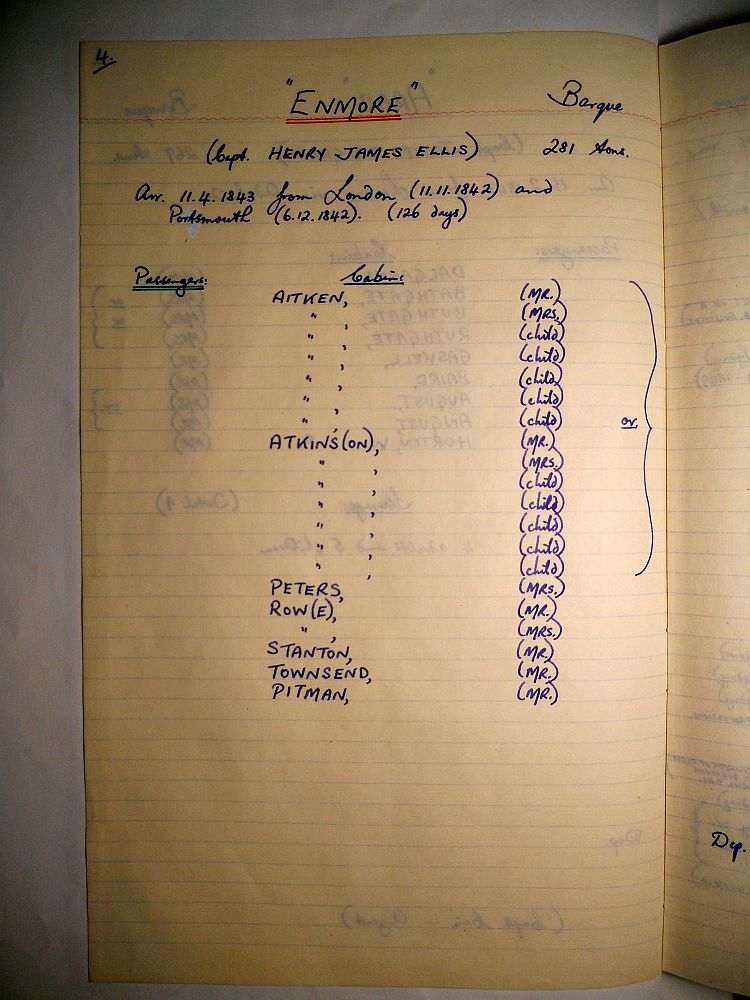 4.
"ENMORE" Barque
(Capt. HENRY JAMES ELLIS) 281 tons.
Arr. 11.4.1843 from London (11.11.1842) and
Portsmouth (6.12.1842). (126 days)
Passengers: Cabin:
AITKEN, (MR.)
" , (MRS.)
" , (child)
" , (child)
" , (child)
" , (child)
" , (child)
ATKINS(ON), (MR.)
" , (MRS.)
" , (child)
" , (child)
" , (child)
" , (child)
" , (child)
or.
PETERS, (MRS.)
ROW(E), (MR.)
" , (MRS.)
STANTON, (MR.)
TOWNSEND, (MR.)
PITMAN, (MR.)
Dep.